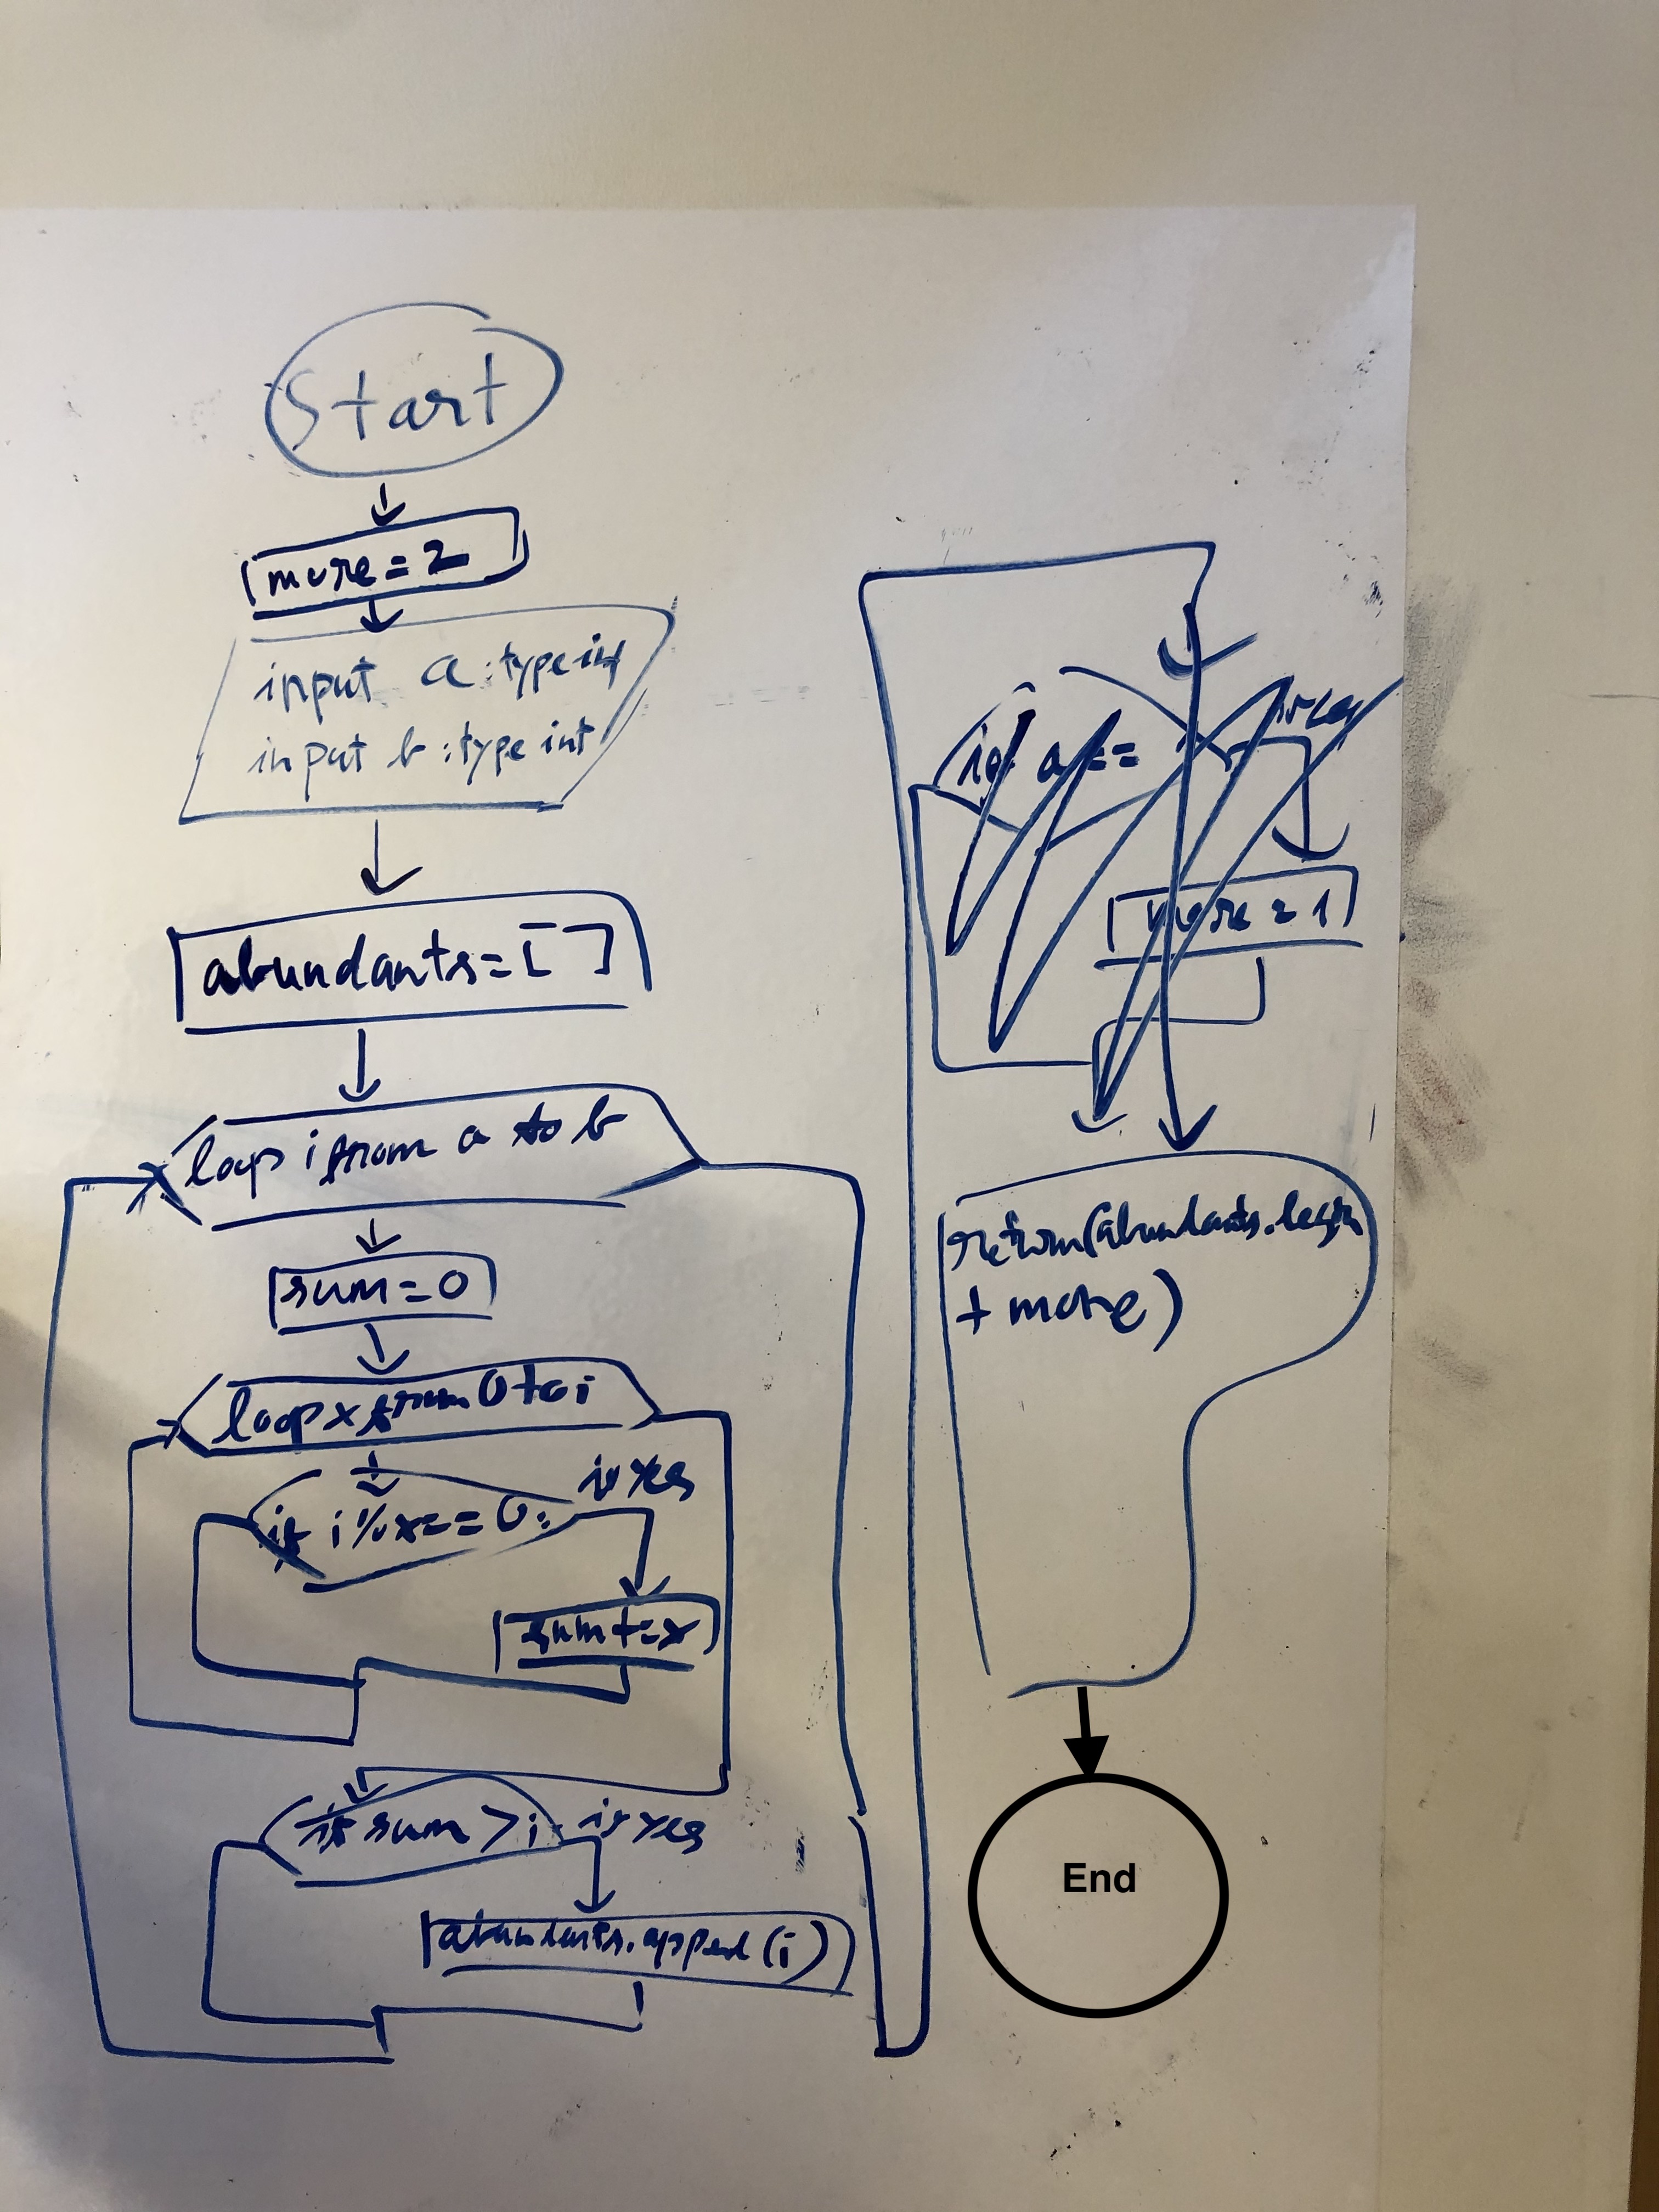 Start
more = 2
input a : type int
input b : type int
abundants = [ ]
loop i from a to b
sum = 0
loop x from 0 to i
if i % x == 0 : is yes
sum += x
if sum > i is yes
abundants.append(i)
if a == is yes
more = 1
return(abundants.
+ more)
End